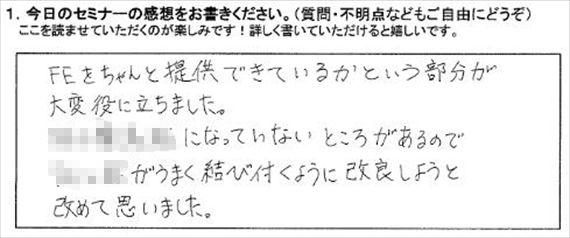 1. 今日のセミナーの感想をお書きください。(質問・不明点などもご自由にどうぞ)
ここを読ませていただくのが楽しみです！詳しく書いていただけると嬉しいです。
FEをちゃんと提供できているかという部分が
大変役に立ちました。
になっていないところがあるので
がうまく結び付くように改良しようと
改めて思いました。